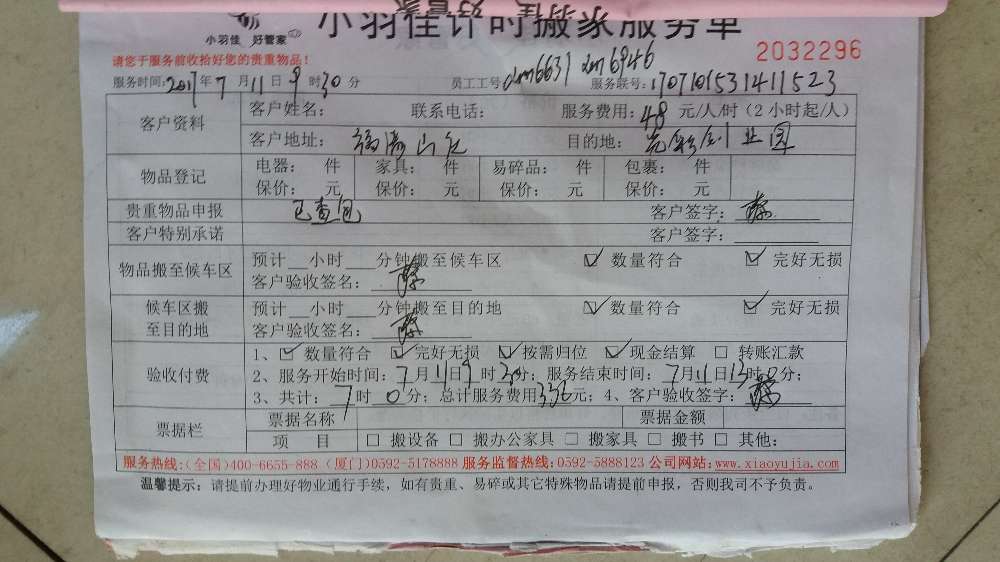 小羽佳计时搬家服务单
小羽佳 好管家
2032296
请您于服务前收拾好您的贵重物品!
服务时间:2017年7月11日9时30分 员工工号:xm6631 xm6946 服务联号:170710153141523
客户资料 客户姓名: 联系电话: 服务费用:48元/人/时(2小时起/人)
客户地址: 目的地: 光彩创业园
物品登记 电器: 件 家具: 件 易碎品: 件 包裹: 件
保价: 元 保价: 元 保价: 元 保价: 元
贵重物品申报 已查包 客户签字:
客户特别承诺 客户签字:
物品搬至候车区 预计__小时___分钟搬至候车区 ☑ 数量符合 ☑ 完好无损
客户验收签名:
候车区搬至目的地 预计__小时___分钟搬至目的地 ☑ 数量符合 ☑ 完好无损
客户验收签名:
验收付费 1、☑ 数量符合 ☑ 完好无损 ☑ 按需归位 ☑ 现金结算 □ 转账汇款
2、服务开始时间:7月11日9时30分;服务结束时间:7月11日13时0分;
3、共计:7时0分;总计服务费用336元;4、客户验收签字:
票据栏 票据名称 票据金额
项 目 □ 搬设备 □ 搬办公家具 □ 搬家具 □ 搬书 □ 其他:
服务热线:(全国)400-6655-888 (厦门)0592-5178888 服务监督热线:0592-5888123 公司网站:www.xiaoyujia.com
温馨提示:请提前办理好物业通行手续,如有贵重、易碎或其它特殊物品请提前申报,否则我司不予负责。